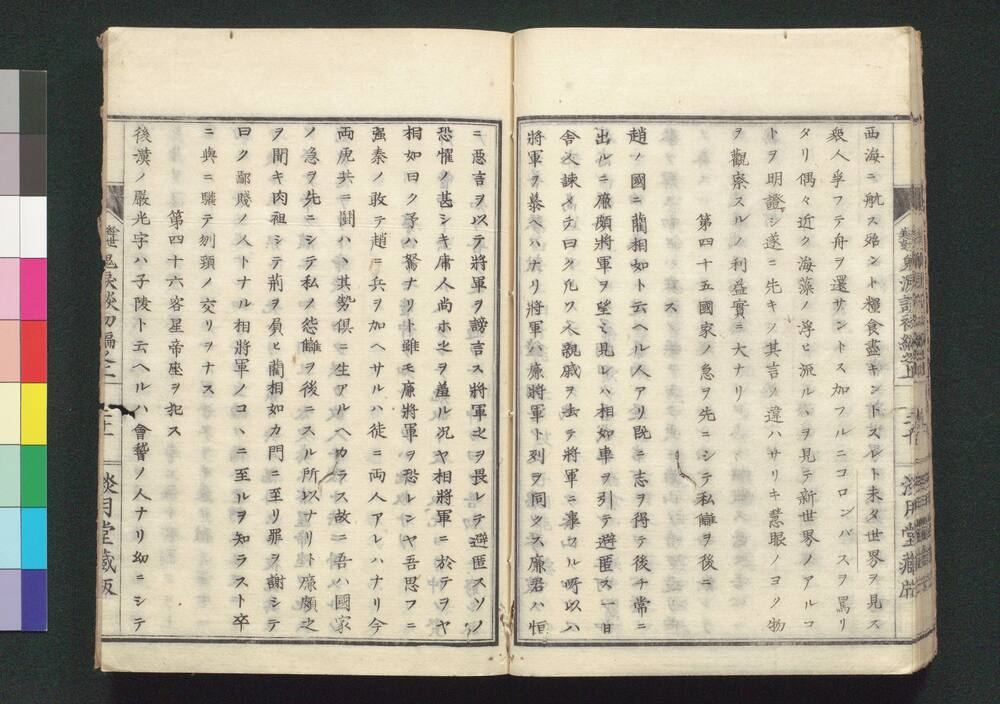 西海ニ航ス殆ント糧食盡キントスレト未タ世界ヲ見ス
衆人爭フテ舟ヲ還サントス加フルニコロンバスヲ罵リ
タリ偶々近ク海藻ノ浮ヒ流ルヽヲ見テ新世界ノアルコ
トヲ明證シ遂ニ先キノ其言ノ違ハサリキ慧眼ノヨク物
ヲ觀察スルノ利益實ニ大ナリ
第四十五國家ノ急ヲ先ニシテ私讎ヲ後ニ
ス
趙ノ國ニ藺相如ト云ヘル人アリ既ニ志ヲ得テ後チ常ニ
出ルニ廉頗將軍ヲ望ミ見レハ相如車ヲ引テ避匿ス一日
舍人諫メテ曰ク凡ソ人親戚ヲ去テ將軍ニ事フル所以ハ
將軍ヲ慕ヘハナリ將軍ハ廉將軍ト列ヲ同フス廉君ハ恒
ニ惡言ヲ以テ將軍ヲ謗言ス將軍之ヲ畏レテ避匿スソノ
恐懼ノ甚シキ庸人尚ホ之ヲ羞ル况ヤ相將軍ニ於テヲヤ
相如曰ク予ハ駑ナリト雖モ廉將軍ヲ恐レンヤ吾思フニ
强秦ノ敢テ趙ニ兵ヲ加ヘサルハ徒ニ両人アレハナリ今
両虎共ニ鬪ハヽ其勢倶ニ生アルヘカラス故ニ吾ハ國家
ノ急ヲ先ニシテ私ノ怨讎ヲ後ニスル所以ナリト廉頗之
ヲ聞キ肉袒シテ荊ヲ負ヒ藺相如カ門ニ至リ罪ヲ謝シテ
曰ク鄙賤ノ人トナル相將軍ノコヽニ至ルヲ知ラスト卒
ニ與ニ驩テ刎頸ノ交リヲナス
第四十六客星帝座ヲ犯ス
後漢ノ嚴光字ハ子陵ト云ヘルハ會稽ノ人ナリ幼ニシテ
談初編之二
二十一
淡月堂藏版